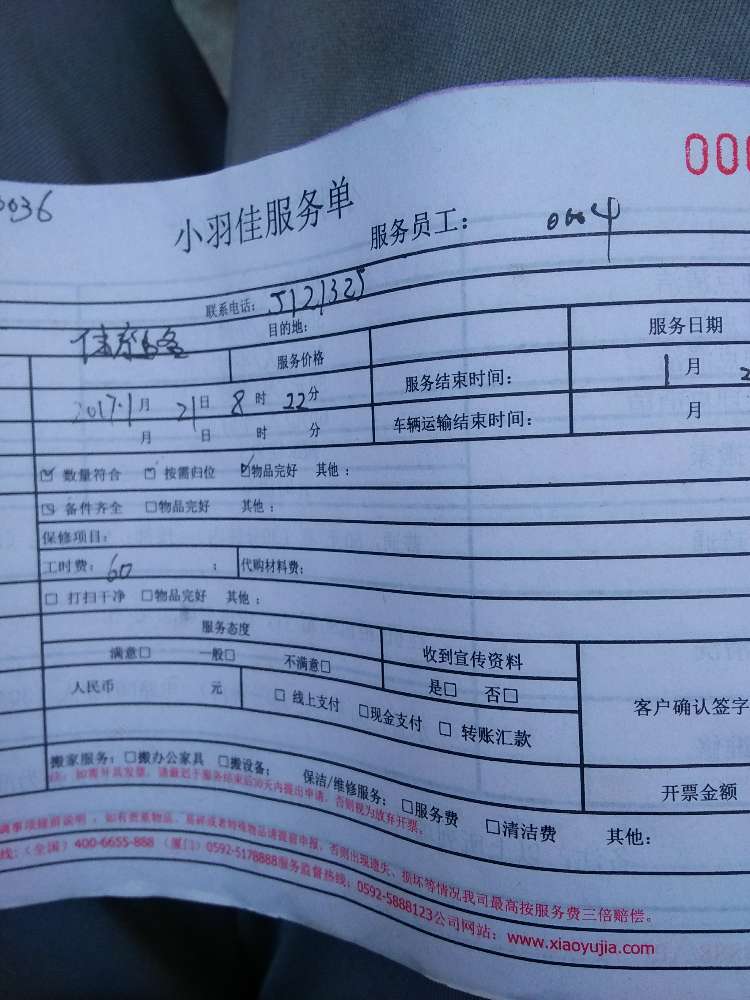 000
0036
小羽佳服务单
服务员工: 0004
联系电话: 5121325
目的地:
服务价格
服务日期
2017.1月 21日 8时 22分
服务结束时间: 1月 2
月 日 时 分
车辆运输结束时间: 月
☑ 数量符合 ☑ 按需归位 ☑物品完好 其他:
☑ 备件齐全 □物品完好 其他:
保修项目:
工时费: 60 : 代购材料费:
□ 打扫干净 □物品完好 其他:
服务态度
满意□ 一般□ 不满意□
收到宣传资料
是□ 否□
客户确认签字
人民币 元
□ 线上支付 □现金支付 □ 转账汇款
搬家服务: □搬办公家具 □搬设备: 保洁/维修服务: □服务费 □清洁费 其他:
开票金额
注: 如需开具发票, 请最迟于服务结束后30天内提出申请, 否则视为放弃开票。
如有贵重物品、易碎或者特殊物品请提前申报, 否则出现遗失、损坏等情况我司最高按服务费三倍赔偿。
线: (全国) 400-6655-888 (厦门) 0592-5178888服务监督热线: 0592-5888123公司网站: www.xiaoyujia.com